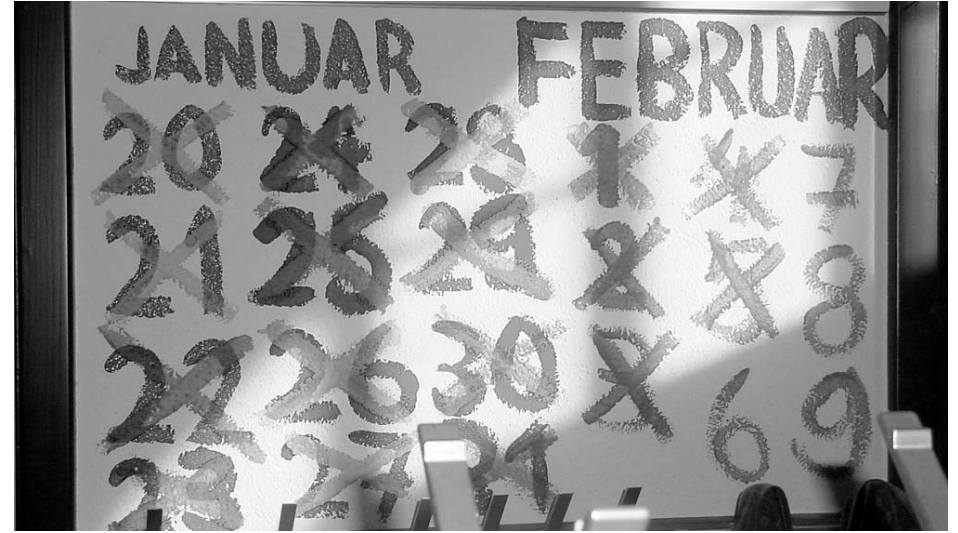 JANUAR FEBRUAR
20 24 28 1 4 7
21 25 29 2 5 8
22 26 30 3 6 9
23 27 31